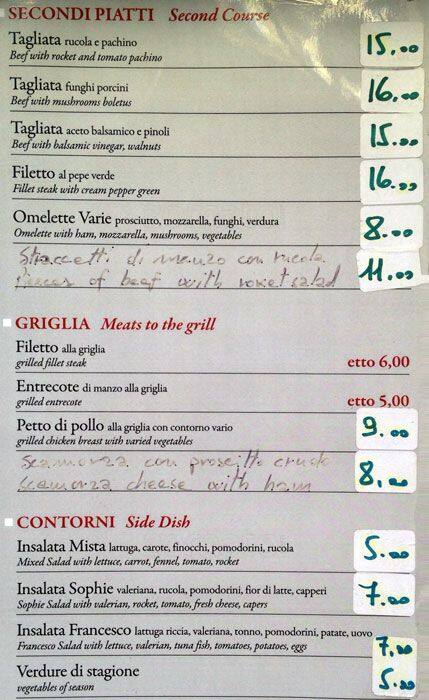 SECONDI PIATTI Second Course
Tagliata rucola e pachino 15.00
Beef with rocket and tomato pachino
Tagliata funghi porcini 16.00
Beef with mushrooms boletus
Tagliata aceto balsamico e pinoli 15.00
Beef with balsamic vinegar, walnuts
Filetto al pepe verde 16.00
Fillet steak with cream pepper green
Omelette Varie prosciutto, mozzarella, funghi, verdura 8.00
Omelette with ham, mozzarella, mushrooms, vegetables
Straccetti di manzo con rucola
Pieces of beef with rocket salad 11.00
GRIGLIA Meats to the grill
Filetto alla griglia
grilled fillet steak etto 6,00
Entrecote di manzo alla griglia
grilled entrecote etto 5,00
Petto di pollo alla griglia con contorno vario 9.00
grilled chicken breast with varied vegetables
scamorza con prosciitto crudo 8,00
scamorza cheese with ham
CONTORNI Side Dish
Insalata Mista lattuga, carote, finocchi, pomodorini, rucola 5.00
Mixed Salad with lettuce, carrot, fennel, tomato, rocket
Insalata Sophie valeriana, rucola, pomodorini, fior di latte, capperi 7.00
Sophie Salad with valerian, rocket, tomato, fresh cheese, capers
Insalata Francesco lattuga riccia, valeriana, tonno, pomodorini, patate, uovo
Francesco Salad with lettuce, valerian, tuna fish, tomatoes, potatoes, eggs 7,00
Verdure di stagione 5.00
vegetables of season